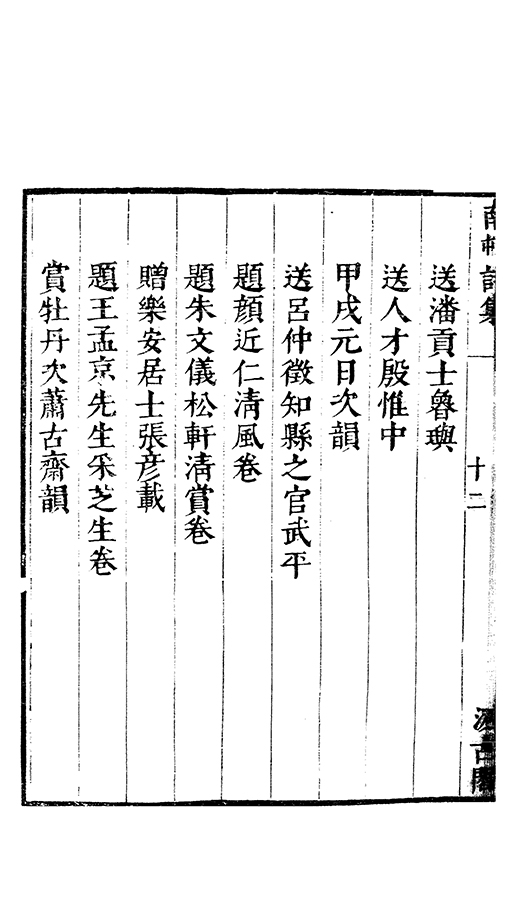 南村詩集
十二
汲古閣
送潘貢士魯璵
送人才殷惟中
甲戌元日次韻
送呂仲徵知縣之官武平
題顏近仁清風卷
題朱文儀松軒清賞卷
贈樂安居士張彥載
題王孟京先生采芝生卷
賞牡丹次蕭古齋韻